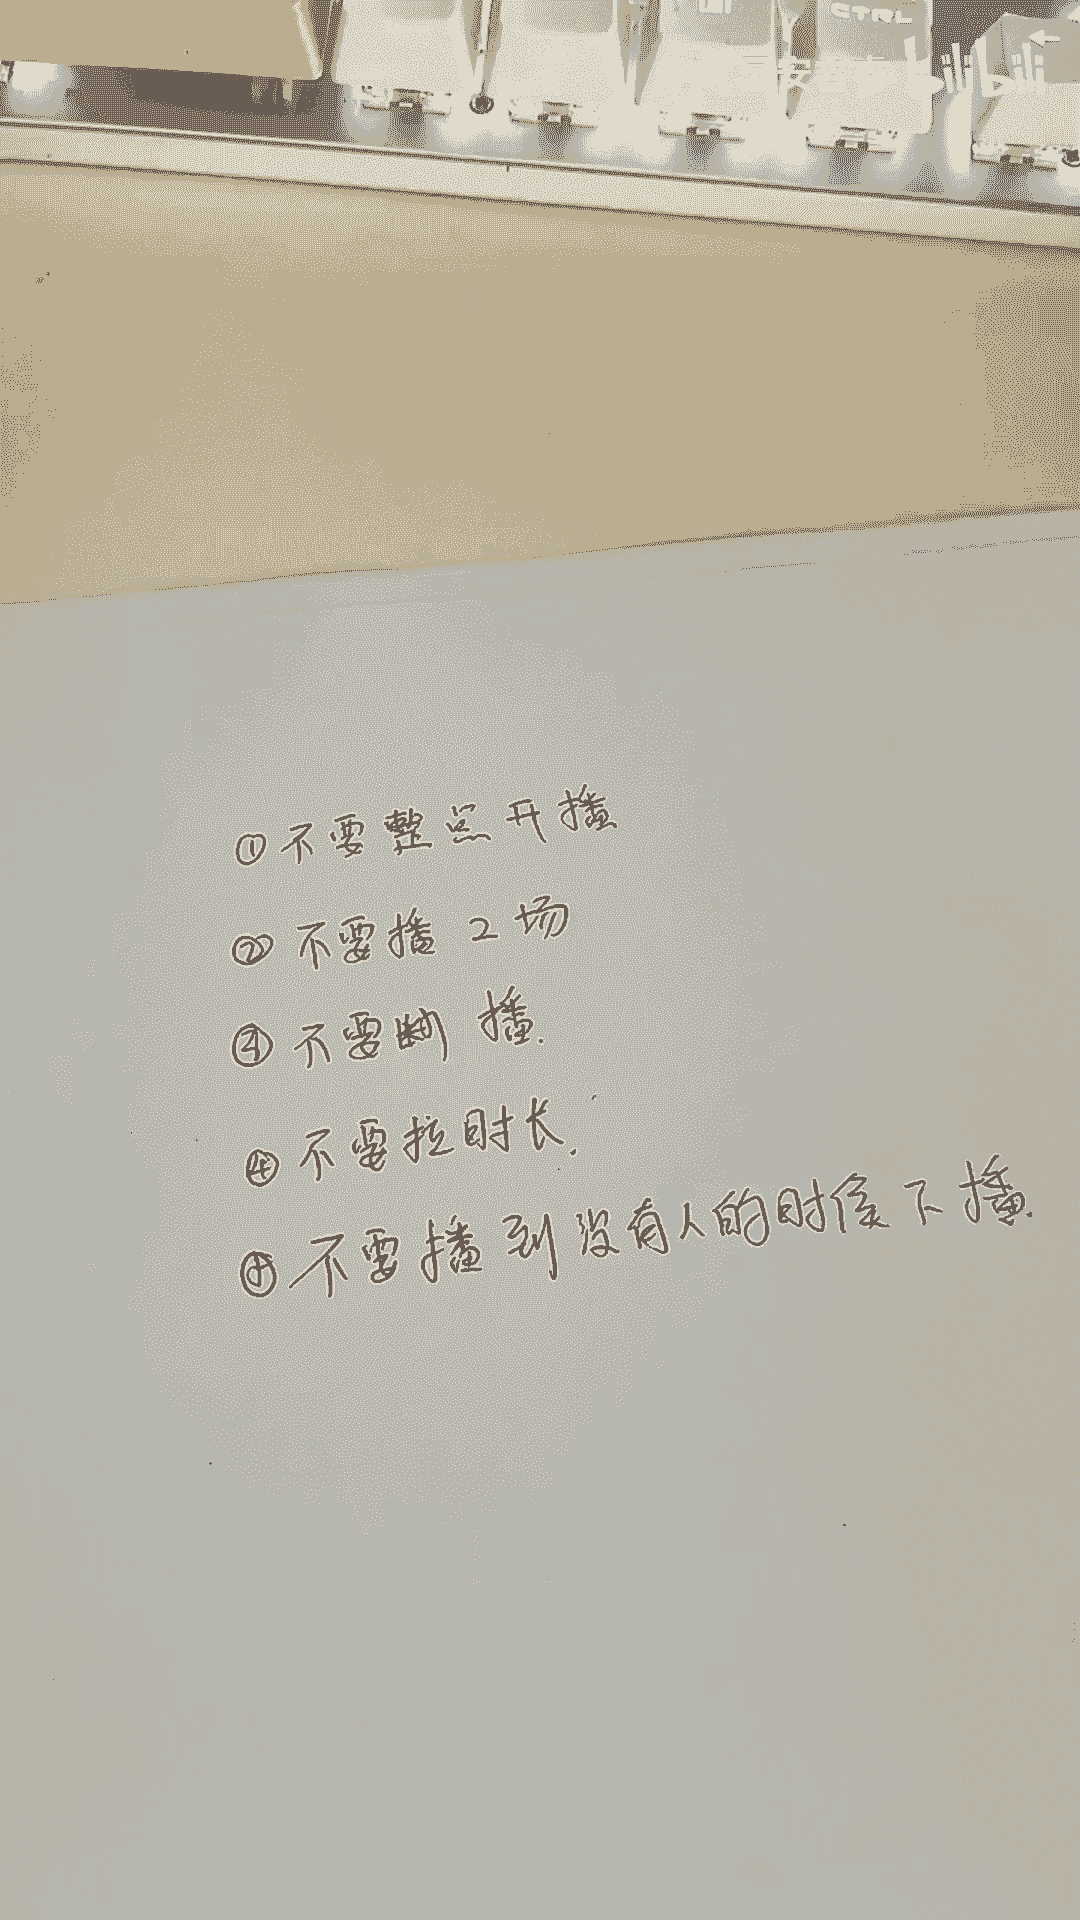 CTRL
①不要整点开播
②不要播2场
③不要断播.
④不要拉时长.
⑤不要播到没有人的时候下播.